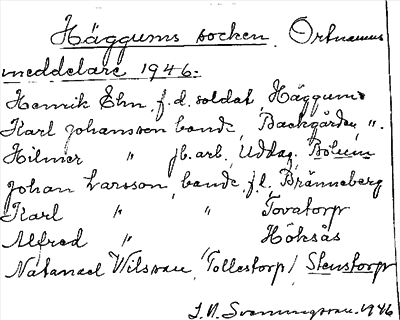 Häggums socken. Ortnamns
meddelare 1946.
Henrik Ehn, f.d. soldat, Häggum
Karl Johansson bonde, Backgården, ".
Hilmer " jb.arb. Uddag. Bolum
Johan Larsson, bonde, f.l, Bränneberg
Karl " " Tovatorp
Alfred " Höksås
Natanael Wilsson, Tollestorp / Stenstorp
J. A. Svenningsson. 1946